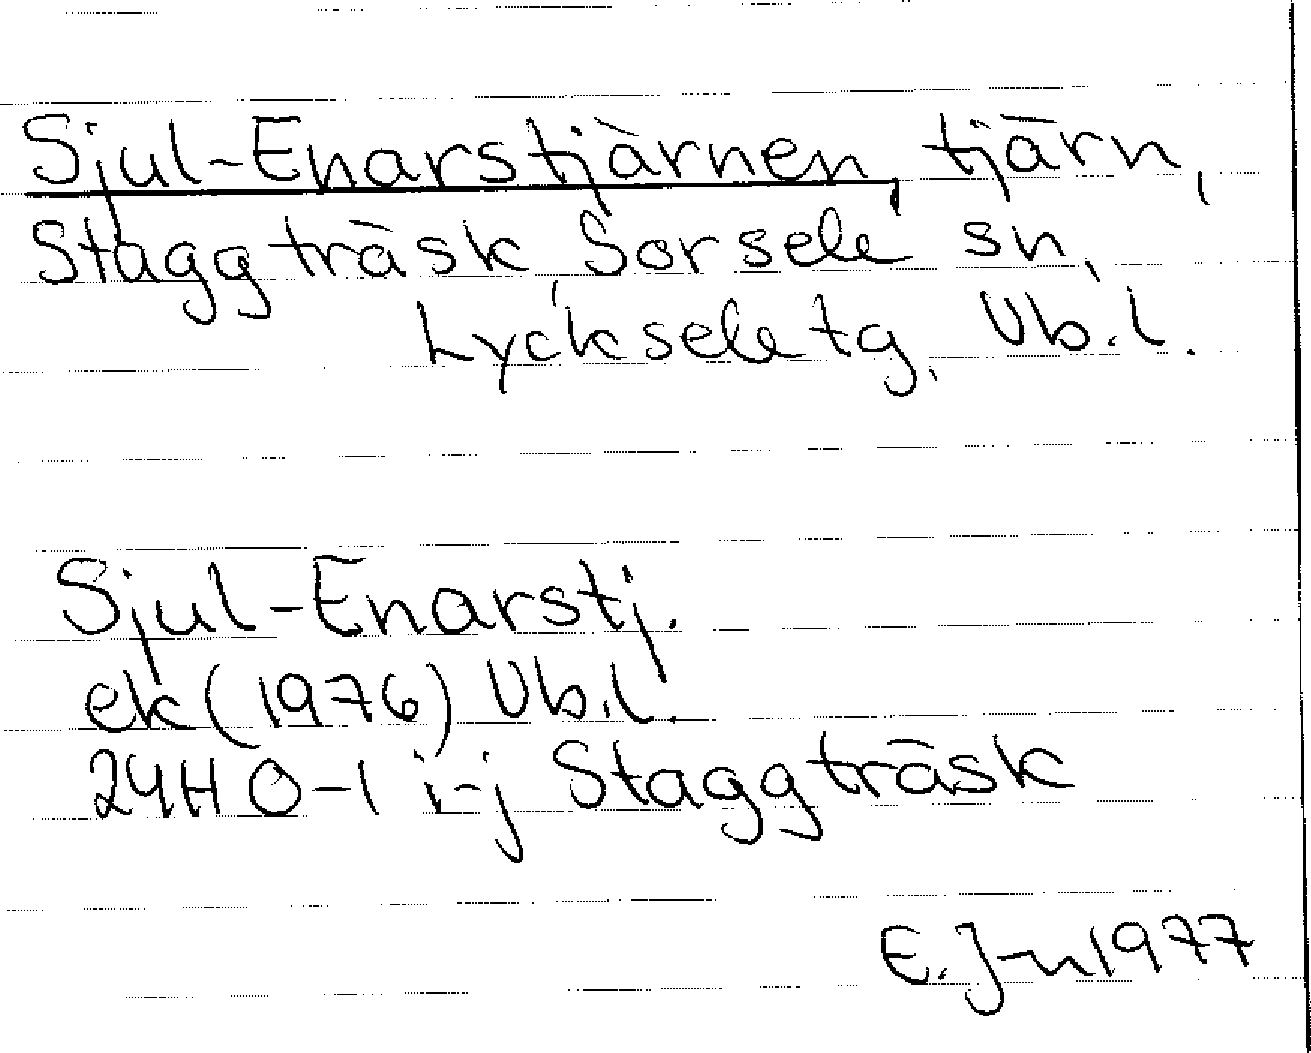 Sjul-Enarstjärnen, tjärn,
Staggträsk, Sorsele sn,
Lycksele tg, Vb.l.
Sjul-Enarstj.
ek (1976) Vb.l.
24H 0-1 i-j Staggträsk
E. J-n 1977